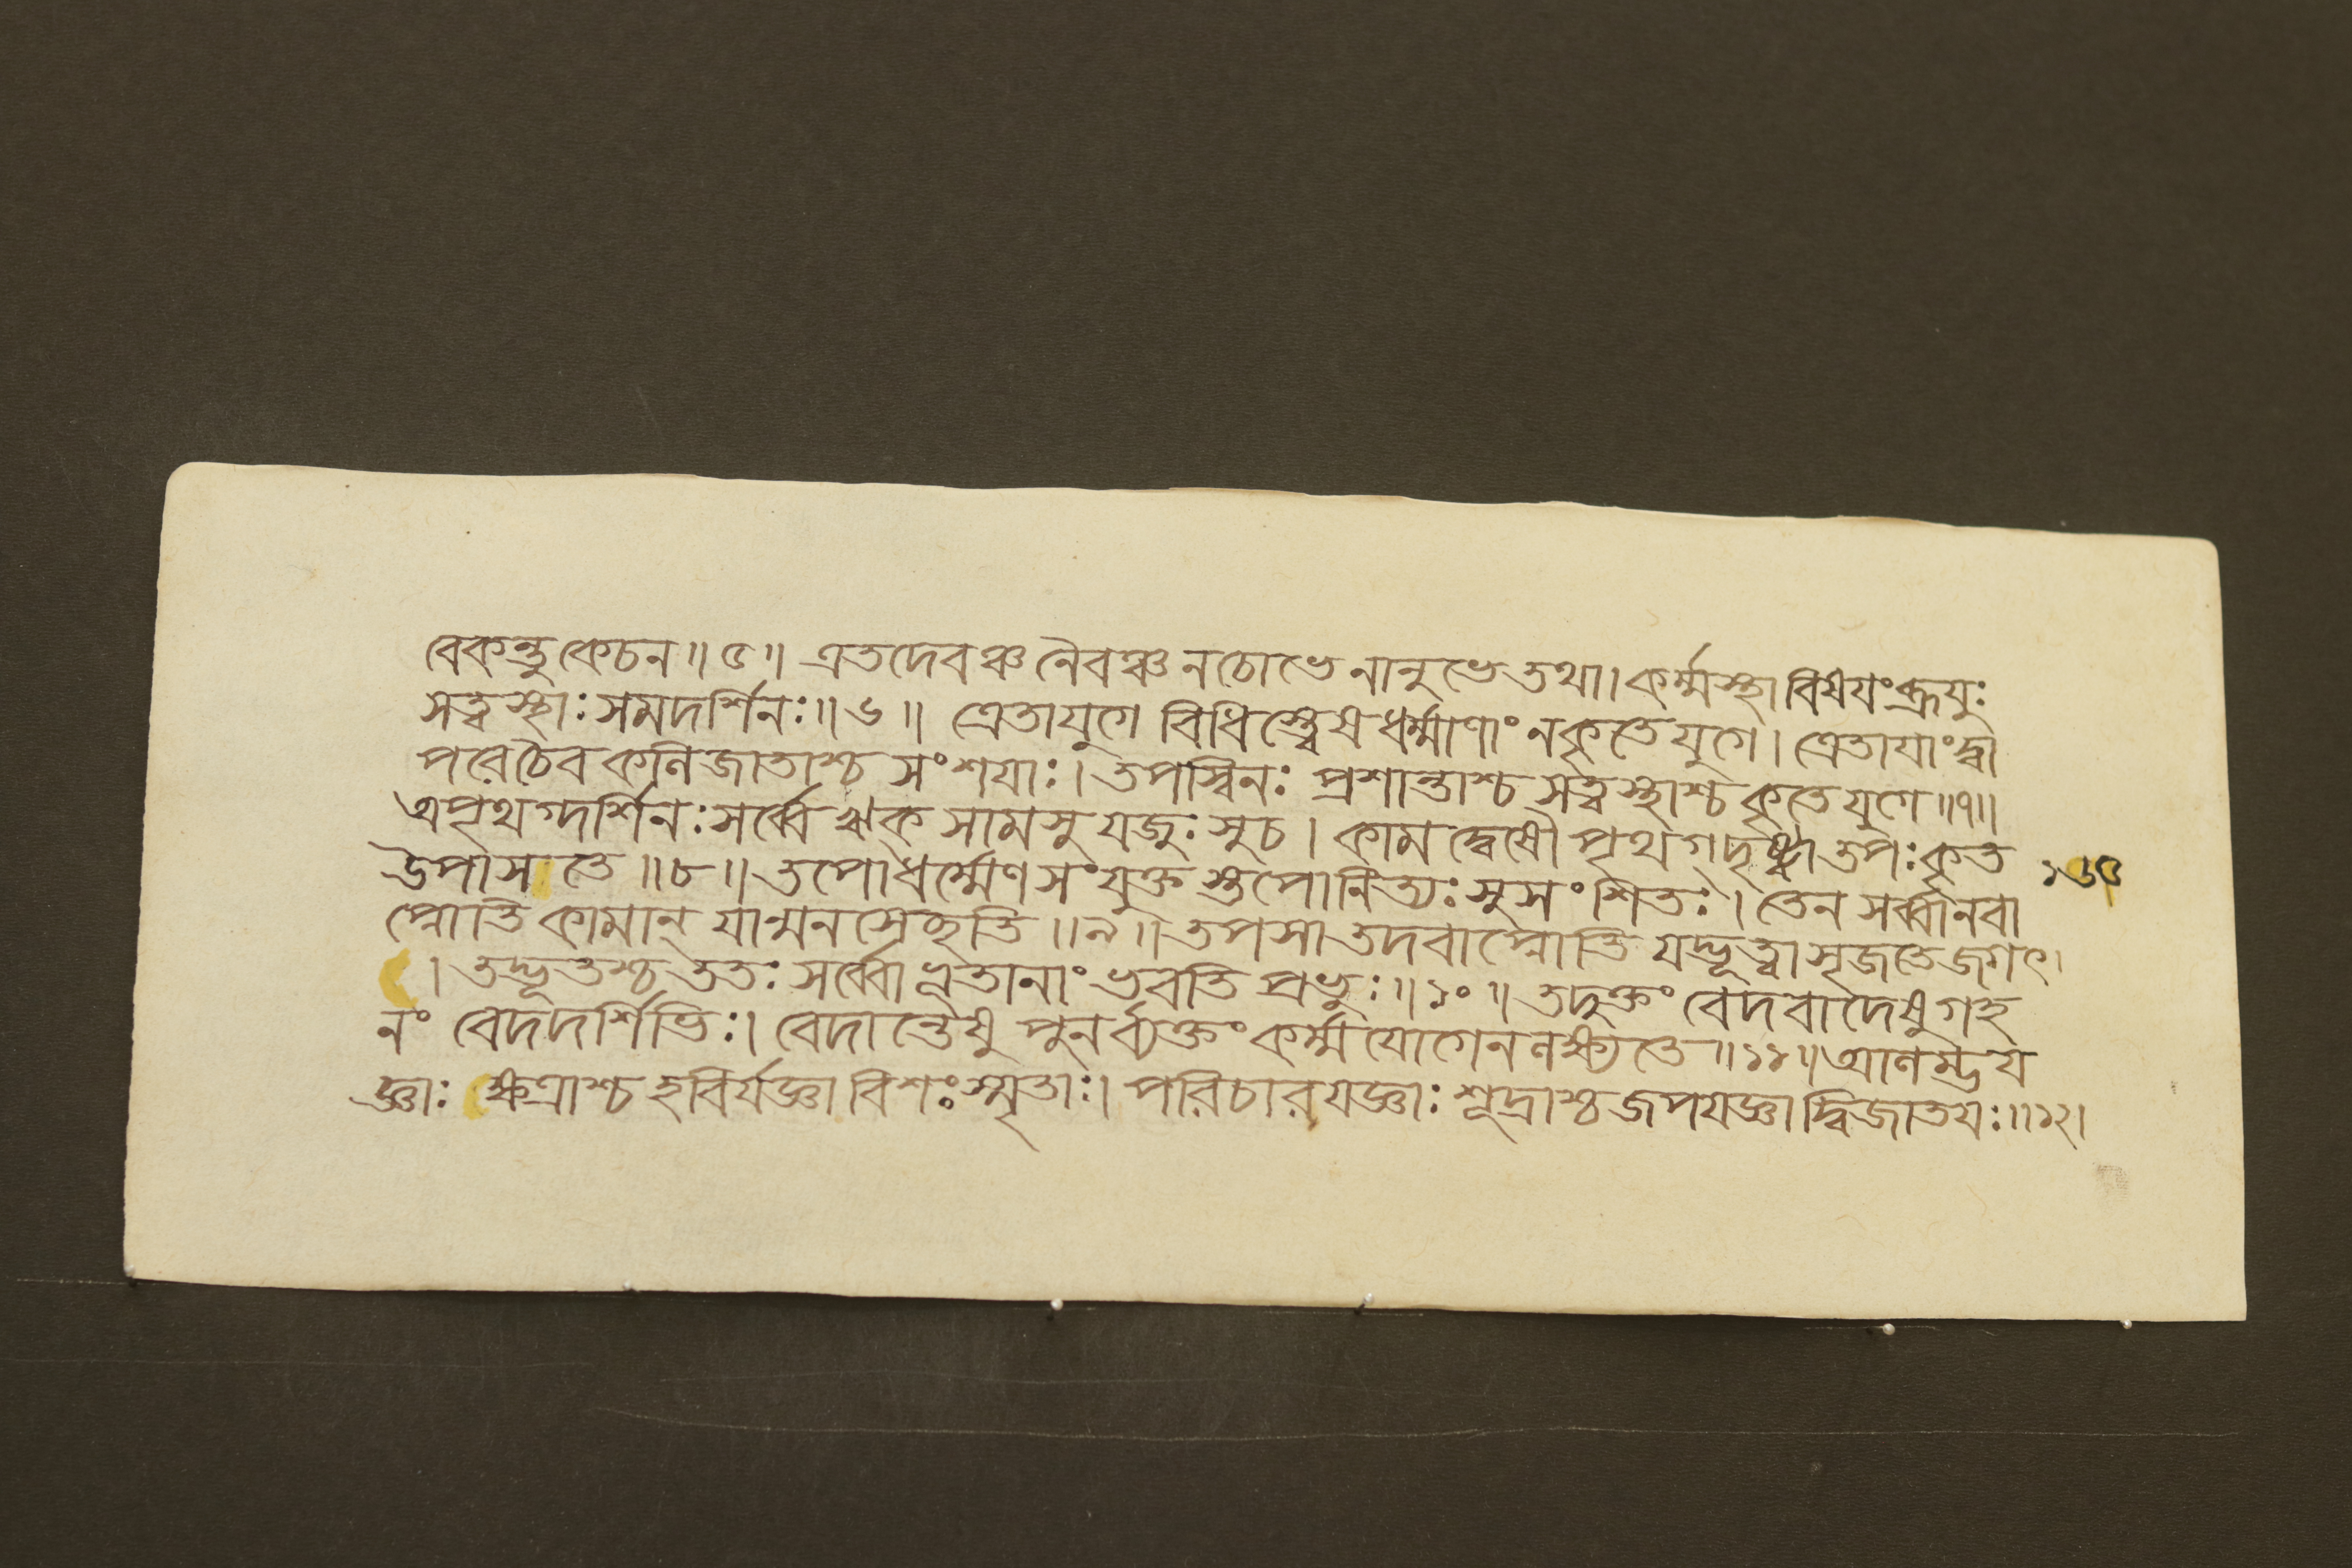 বেকন্তু কেচন॥ ৫॥ এতদেবঞ্চ নৈবঞ্চ নচোভে নানুভে তথা। কর্ম্মস্থা বিষয়ং ব্রূয়ুঃ
সত্ত্বস্থাঃ সমদর্শিনঃ॥ ৬॥ ত্রেতাযুগে বিধিস্ত্বেষ ধর্ম্মাণাং ন কৃতে যুগে। ত্রেতায়াং দ্বা
পরে চৈব কলিজাতাশ্চ সংশয়াঃ। তপস্বিনঃ প্রশান্তাশ্চ সত্ত্বস্থাশ্চ কৃতে যুগে॥৭॥
অপৃথগ্দর্শিনঃ সর্ব্বে ঋক্ সামসু যজুঃসু চ। কামদ্বেষৌ পৃথগ্ দৃষ্ট্বা তপঃ কৃত
উপাসতে॥ ৮॥ তপোধর্ম্মেণ সংযুক্তস্তপোনিত্যঃ সুসংশিতঃ। তেন সর্ব্বানবা
১৬৫
প্নোতি কামান্ যান্মনসেচ্ছতি॥ ৯॥ তপসা তদবাপ্নোতি যদ্ভূত্বা সৃজতে জগৎ।
। তদ্ভূতশ্চ ততঃ সর্ব্বো ভূতানাং ভবতি প্রভুঃ॥ ১০॥ তদুক্তং বেদবাদেষু গহ
নং বেদদর্শিভিঃ। বেদান্তেষু পুনর্ব্যক্তং কর্ম্মযোগেন লক্ষ্যতে॥ ১১॥ আলম্ভয
জ্ঞাঃ ক্ষত্রাশ্চ হবির্যজ্ঞা বিশঃ স্মৃতাঃ। পরিচারযজ্ঞাঃ শূদ্রাশ্চ জপযজ্ঞা দ্বিজাতয়ঃ॥১২।